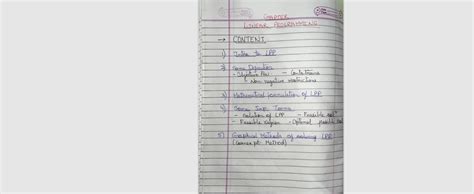 CHAPTER
LINEAR PROGRAMMING
→ CONTENT
1) Intro to LPP
2) Some Definition
- Objective Fxn - Constraints
• Non negative restrictions
3) Mathematical formulation of LPP
4) Some Imp. Terms
- Solution of LPP - Feasible solⁿ
- Feasible region - Optimal feasible
5) Graphical Methods of solving LPP
(Corner pt. Method)